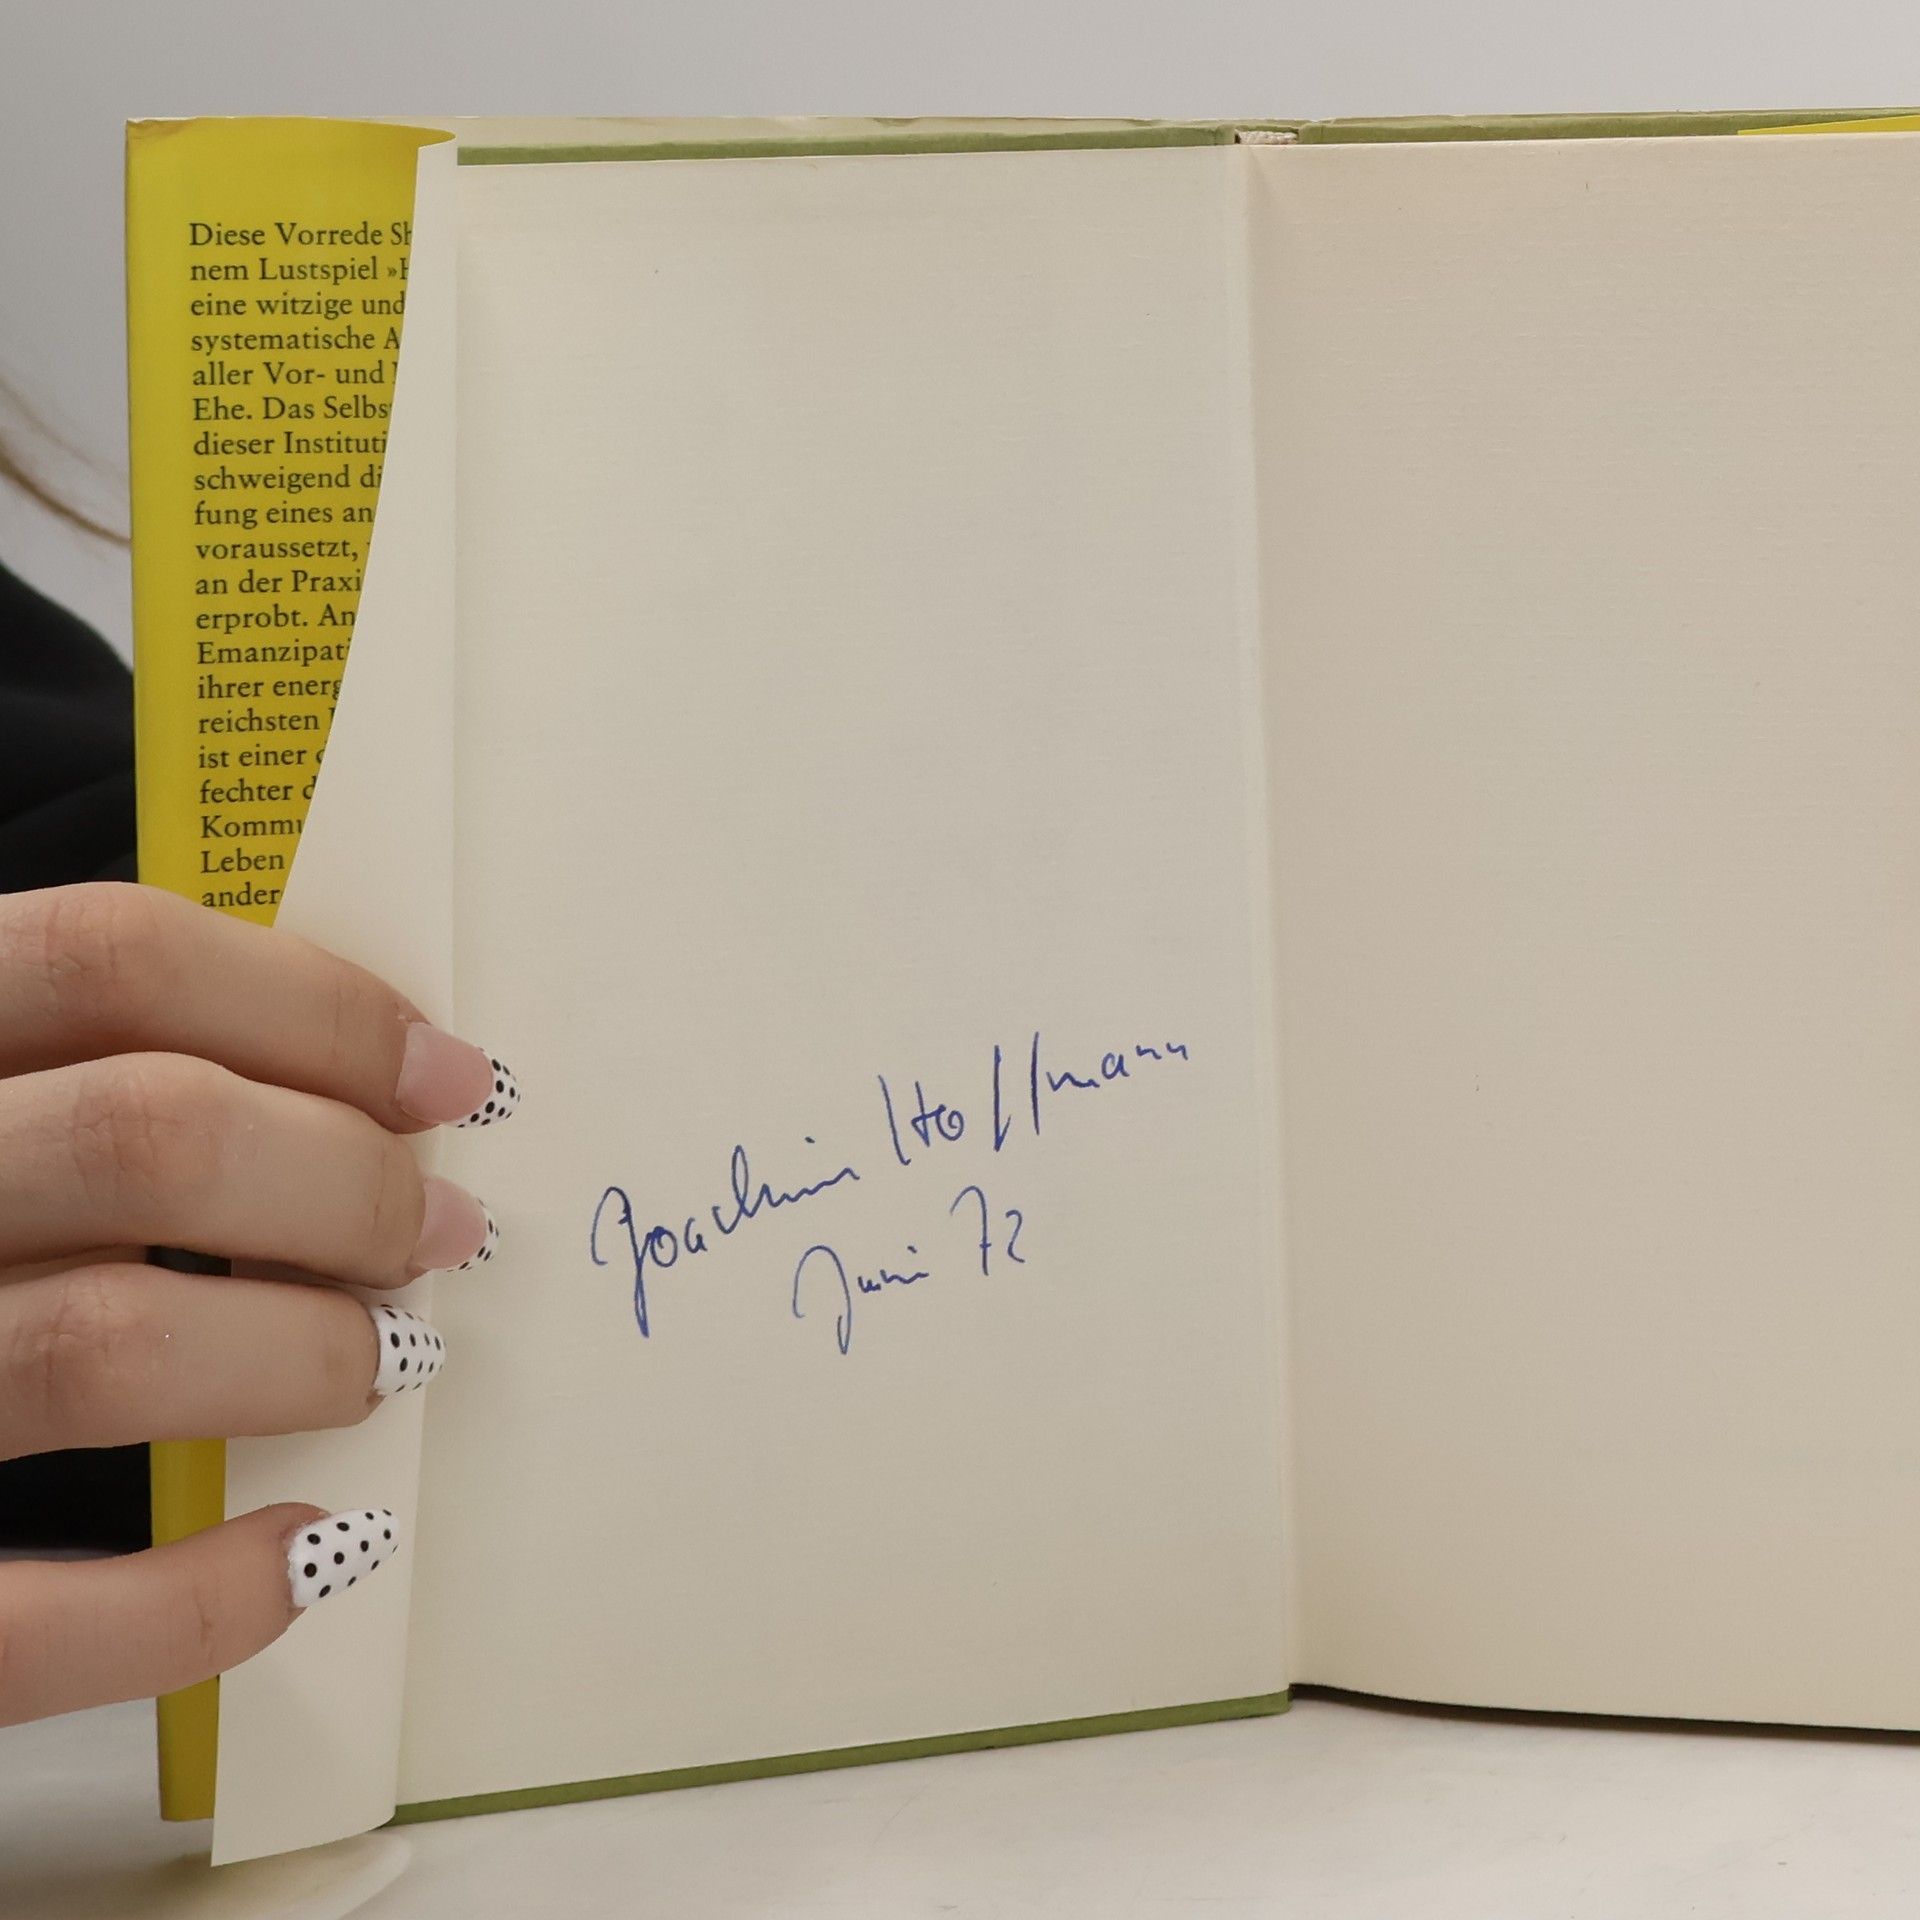 Diese Vorrede Sh
nem Lustspiel »H
eine witzige und
systematische A
aller Vor- und
Ehe. Das Selbs
dieser Instituti
schweigend di
fung eines an
voraussetzt,
an der Praxi
erprobt. An
Emanzipati
ihrer energ
reichsten
ist einer d
fechter d
Kommu
Leben
ander
Joachim Hoffmann
Juni 72